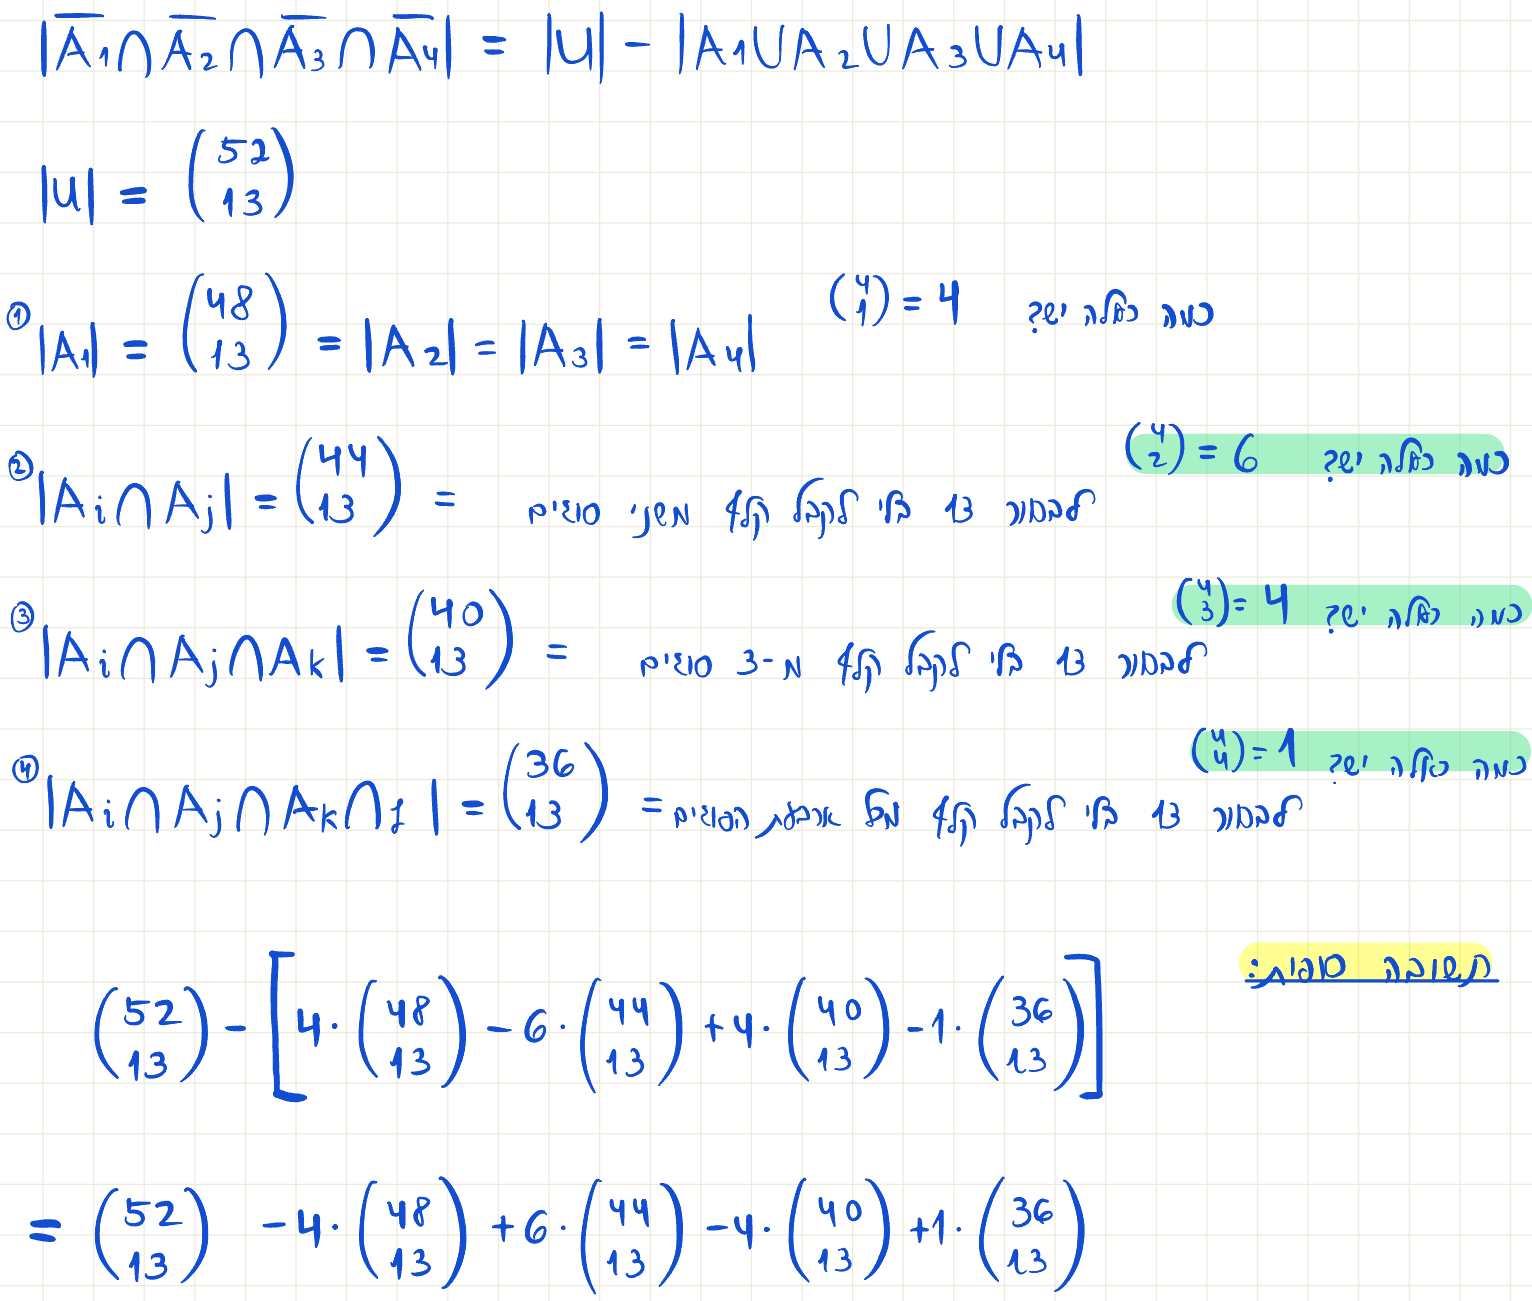 |A̅₁∩A̅₂∩A̅₃∩A̅₄| = |U| - |A₁∪A₂∪A₃∪A₄|
|U| = (52 13)
① |A₁| = (48 13) = |A₂| = |A₃| = |A₄| (4 1) = 4 כמה כאלה יש?
(4 2) = 6 כמה כאלה יש?
② |Aᵢ∩Aⱼ| = (44 13) = לבחור 13 בלי לקבל קלף משני סוגים
(4 3) = 4 כמה כאלה יש?
③ |Aᵢ∩Aⱼ∩Aₖ| = (40 13) = לבחור 13 בלי לקבל קלף מ-3 סוגים
(4 4) = 1 כמה כאלה יש?
④ |Aᵢ∩Aⱼ∩Aₖ∩ₗ| = (36 13) = לבחור 13 בלי לקבל קלף מכל ארבעת הסוגים
תשובה סופית:
(52 13) - [4·(48 13) - 6·(44 13) + 4·(40 13) - 1·(36 13)]
= (52 13) - 4·(48 13) + 6·(44 13) - 4·(40 13) + 1·(36 13)